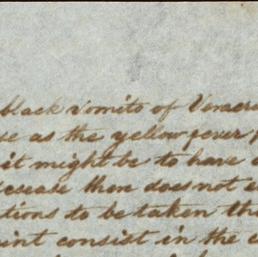 black vomito of Veracr
se as the yellow fever
it might be to have
isease then does not e
tions to be taken tha
int consist in the c